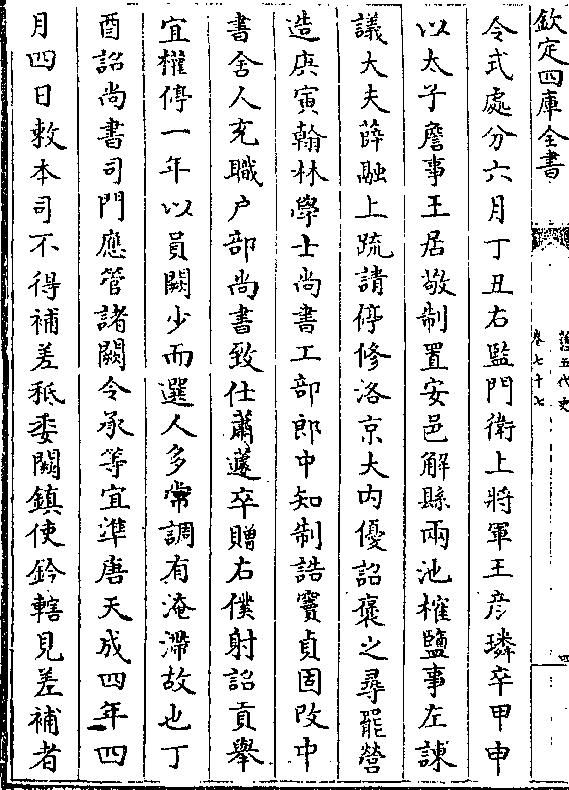 欽定四庫全書
舊五代史
卷七十七
四
令式處分六月丁丑右監門衛上將軍王彥璘卒甲申
以太子詹事王居敬制置安邑解縣兩池榷鹽事左諫
議大夫薛融上疏請停修洛京大内優詔褒之尋罷營
造庚寅翰林學士尚書工部郎中知制誥竇貞固改中
書舍人充職户部尚書致仕蕭蘧卒贈右僕射詔貢舉
宜權停一年以員闕少而選人多常調有淹滯故也丁
酉詔尚書司門應管諸闕令丞等宜準唐天成四年四
月四日敕本司不得補差秖委關鎮使鈐轄見差補者